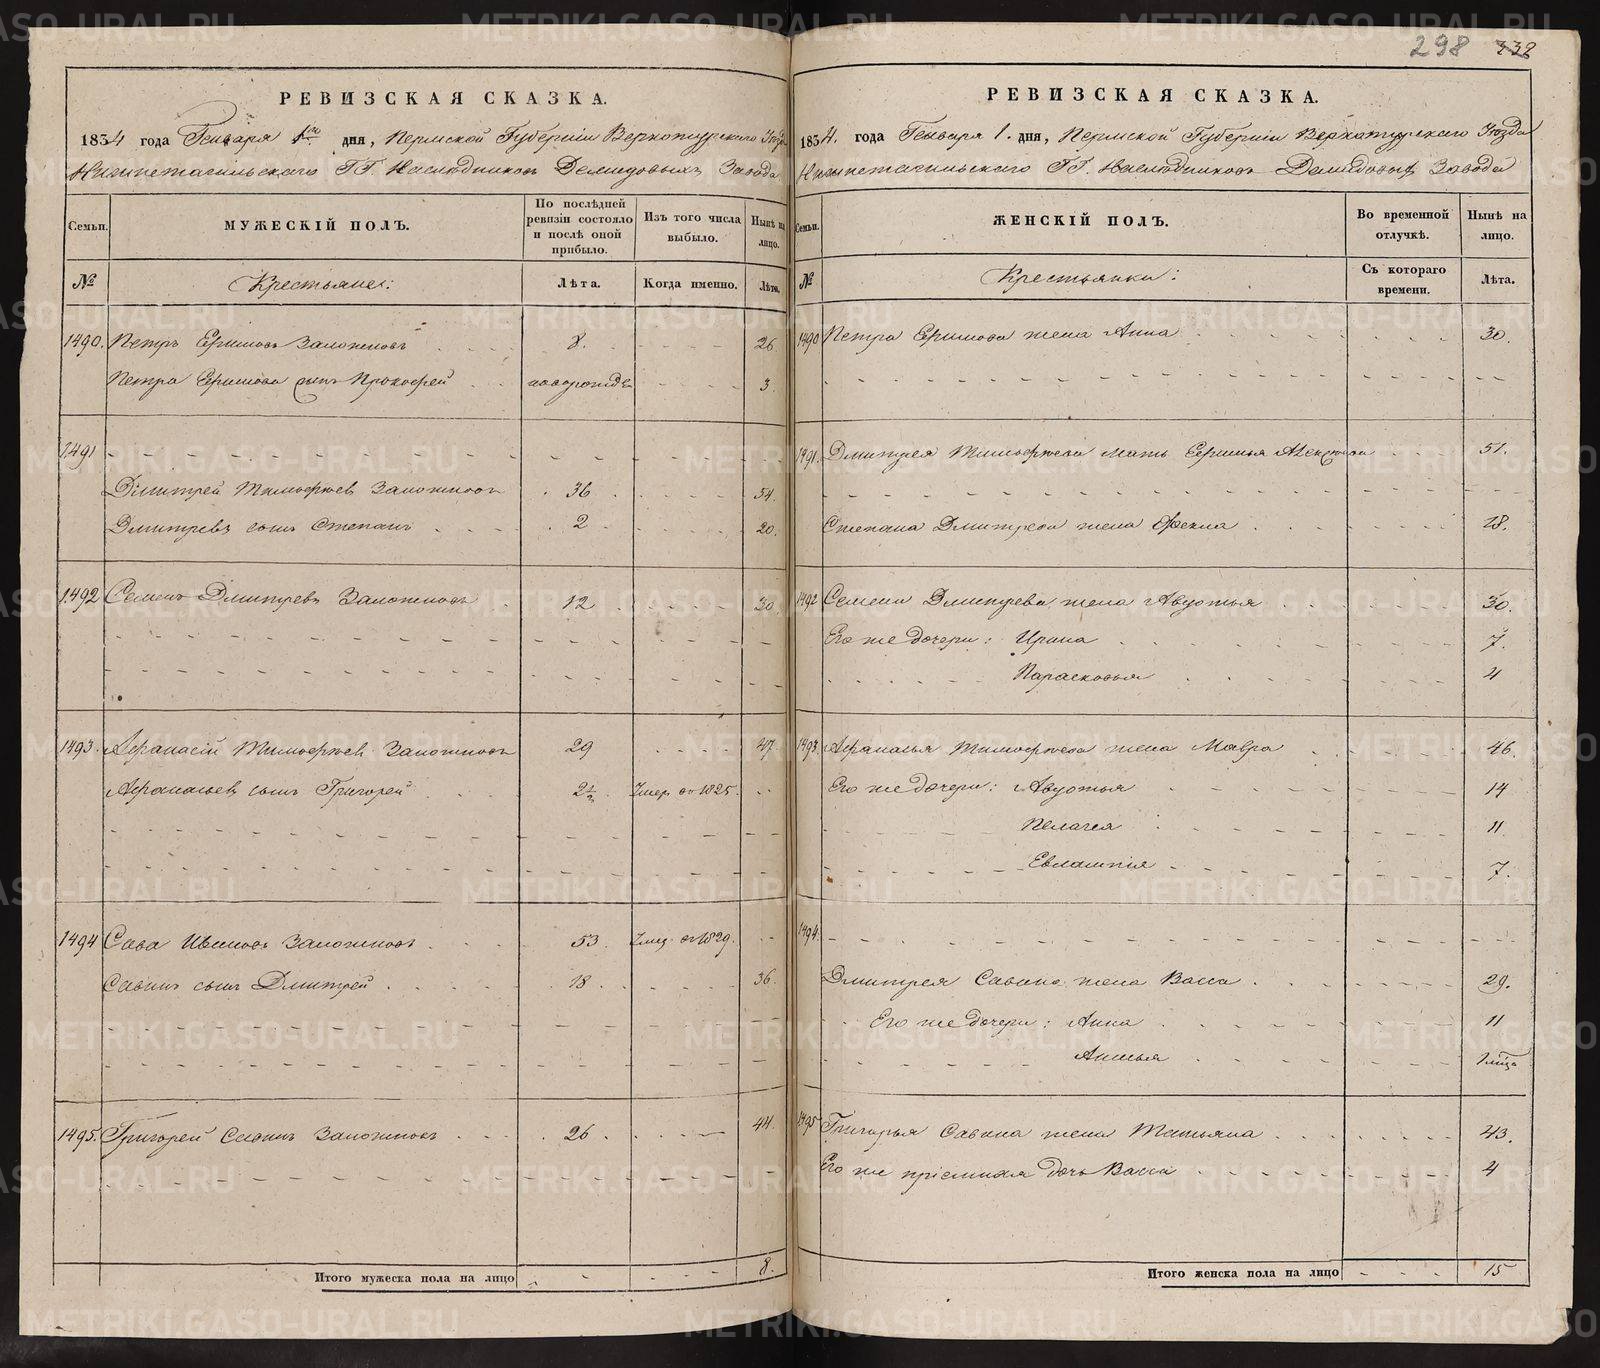 298 332
РЕВИЗСКАЯ СКАЗКА.
1834 года Генваря 1го дня, Пермской Губернии Верхотурскаго Уезда
Нижнетагильскаго ГГ. Наследников Демидовыхъ Завода
Семьи. МУЖЕСКІЙ ПОЛЪ. По послѣдней ревизіи состояло и послѣ оной прибыло. Изъ того числа выбыло. Нынѣ на лицо.
№ Крестьяне: Лѣта. Когда именно. Лѣта.
1490. Петръ Ершовъ Заложновъ 8. 26
Петра Ершова сынъ Прокофей новорожд 3.
1491
Дмитрей Тимофеев Заложновъ 36 54.
Дмитревъ сынъ Степанъ 2 20.
1492 Семенъ Дмитревъ Заложновъ 12 30
1493. Афанасій Тимофеев Заложновъ 29 47.
Афанасьев сынъ Григорей 2½ Умер. в 1825.
1494 Сава Ивановъ Заложновъ 53 Умер. в 1829.
Савинъ сынъ Дмитрей 18. 36.
1495. Григорей Савинъ Заложновъ 26. 44.
Итого мужеска пола на лицо 8.
РЕВИЗСКАЯ СКАЗКА.
1834. года Генваря 1. дня, Пермской Губерніи Верхотурскаго Уезда
Нижнетагильскаго ГГ. Наследниковъ Демидовых Завода
Семьи. ЖЕНСКІЙ ПОЛЪ. Во временной отлучкѣ. Нынѣ на лицо.
№ Крестьянки: Съ котораго времени. Лѣта.
1490 Петра Ершова жена Анна 30.
1491. Дмитрея Тимофеева мать 51.
Степана Дмитрева жена Фекла 18.
1492 Семена Дмитрева жена Авдотья 30.
Его же дочери: Ирина 7.
Парасковья 4
1493. Афанасья Тимофеева жена Мавра 46.
Его же дочери: Авдотья 14
Пелагея 11
Евлампія 7.
1494.
Дмитрея Савина жена Васса 29.
Его же дочери: Анна 11
Анисья
1495 Григорья Савина жена Татьяна 43.
Его же пріемная дочь Васса 4
Итого женска пола на лицо 15